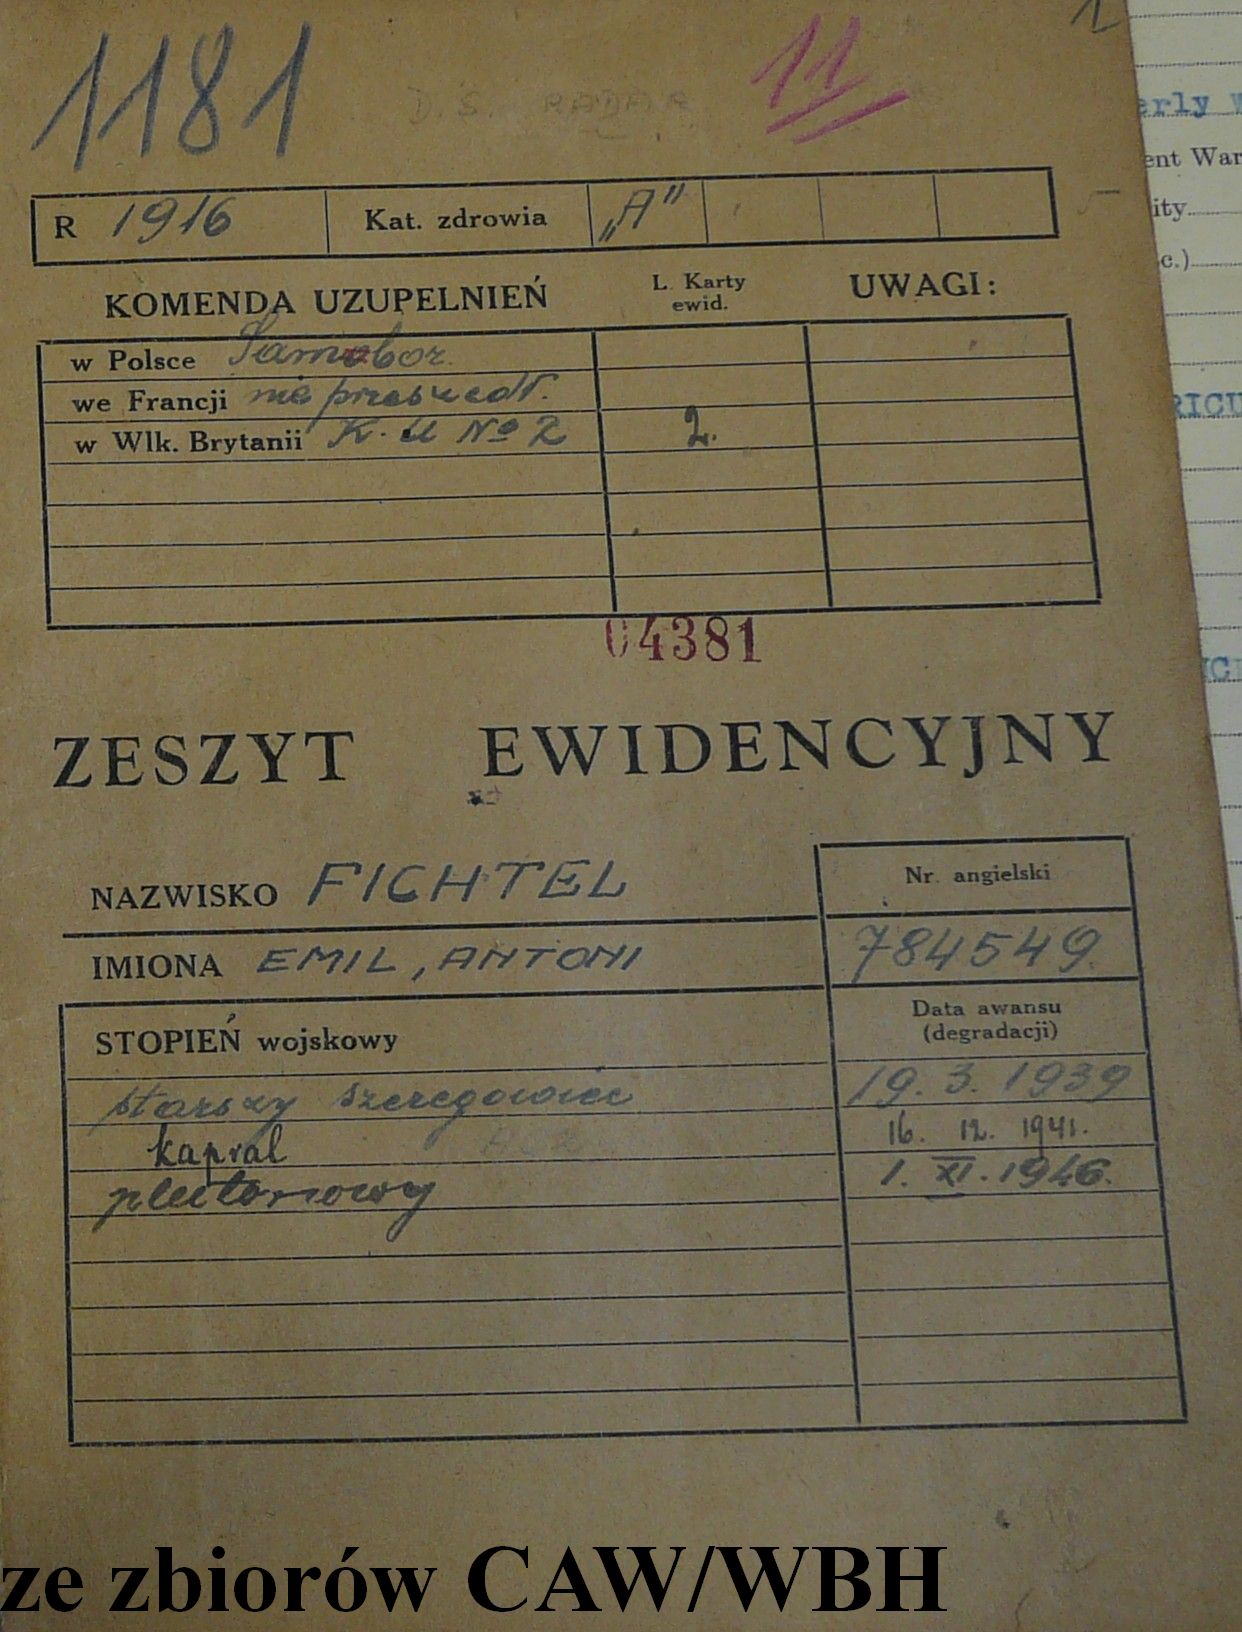 1181
D.S. RADAR
11
R 1916 Kat. zdrowia „A"
KOMENDA UZUPEŁNIEŃ L. Karty ewid. UWAGI:
w Polsce Sambor.
we Francji nie przeszedł.
w Wlk. Brytanii K. U No 2 2.
04381
ZESZYT EWIDENCYJNY
NAZWISKO FICHTEL Nr. angielski
IMIONA EMIL, ANTONI 784549.
STOPIEŃ wojskowy Data awansu (degradacji)
starszy szeregowiec 19. 3. 1939
kapral 16. 12. 1941.
plutonowy 1. XI. 1946.
erly W
ent War
ity
c.)
RICU
ze zbiorów CAW/WBH